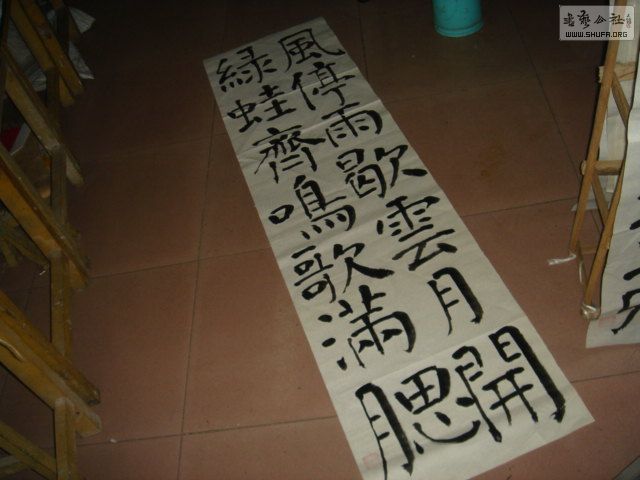 風停雨歇雲月開
綠蛙齊鳴歌滿腮
書藝公社
WWW.SHUFA.ORG